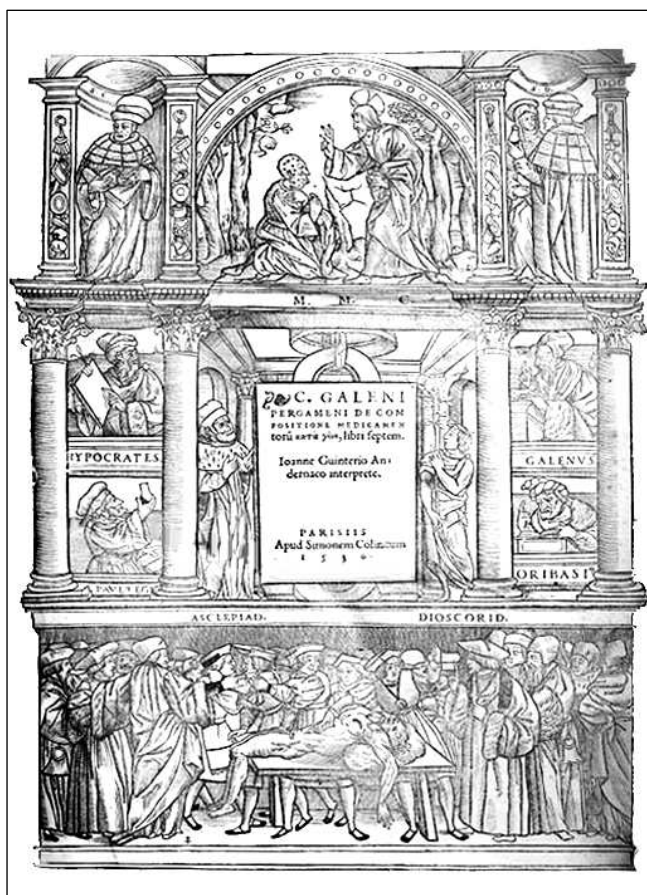 M. M. C.
C. GALENI
PERGAMENI DE COM
POSITIONE MEDICAMEN
torũ κατὰ γένη, libri septem.
Ioanne Guinterio An-
dernaco interprete.
PARISIIS
Apud Simonem Colinæum
1530
HYPOCRATES
GALENVS
P. AVL. EGI
ORIBASI
ASCLEPIAD. DIOSCORID.